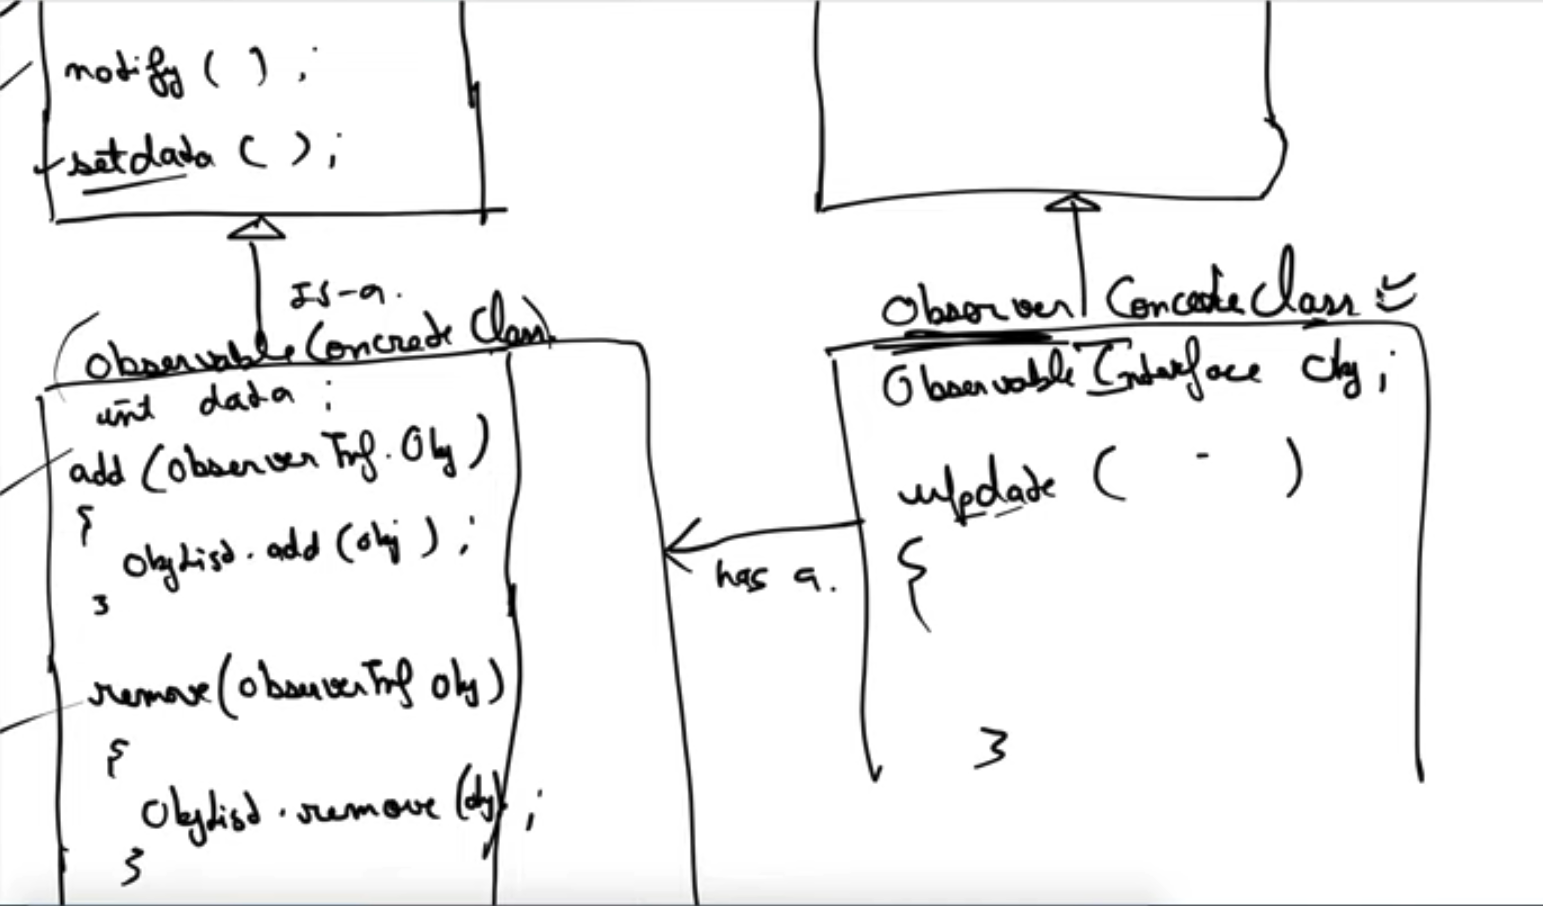 notify ( ) ;
setdata ( ) ;
IS-a.
(Observable Concrete Class)
int data ;
add (Observer Inf. Obj)
{
ObjList. add (obj) ;
}
remove (Observer Inf Obj)
{
ObjList . remove (obj) ;
}
has a.
Observer Concrete Class
Observable Interface Obj ;
update ( - )
{
}